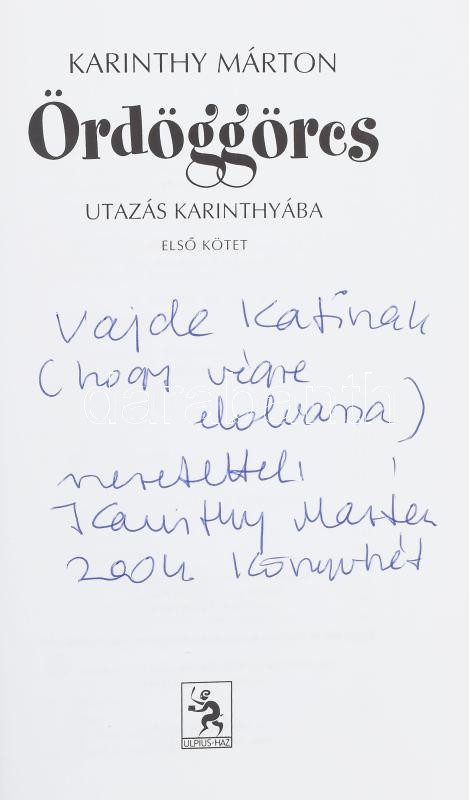 KARINTHY MÁRTON
Ördöggörcs
UTAZÁS KARINTHYÁBA
ELSŐ KÖTET
Vajda Katinak
(hogy végre
elolvassa)
darabanth
szeretettel:
Karinthy Márton
2004 Könyvhét
ULPIUS-HÁZ